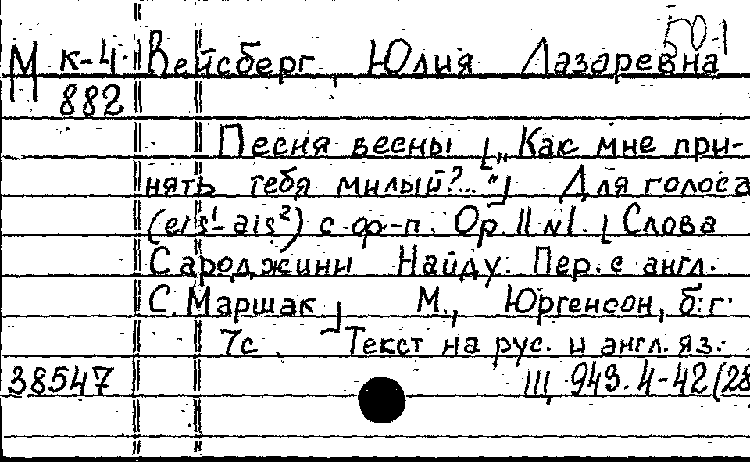 50-1
М к-4 Вейсберг, Юлия Лазаревна
882
Песня весны [„Как мне при-
нять тебя милый?..."] Для голоса
(eis¹-ais²) с ф-п. Op. 11 №1. [Слова
Сароджини Найду. Пер. с англ.
С. Маршак] М., Юргенсон, б.г.
7с. Текст на рус. и англ. яз.
38547 Щ 949.4-42(28